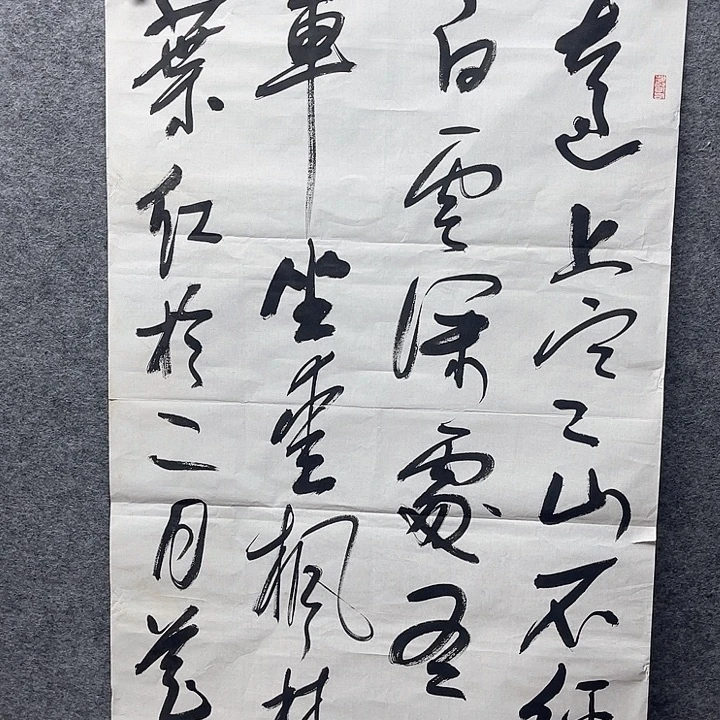 遠上寒山石徑
白雲深處有
車坐愛楓林
葉紅於二月花